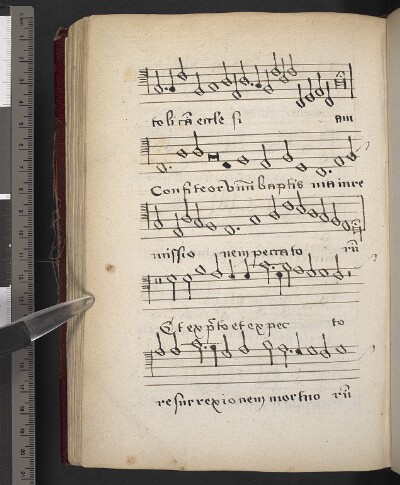 toli cā eccle si am
Confiteor Vnū baptis ma in re
missio nem peccato rū
Et expto et expec to
resurrexionem mortuo rū